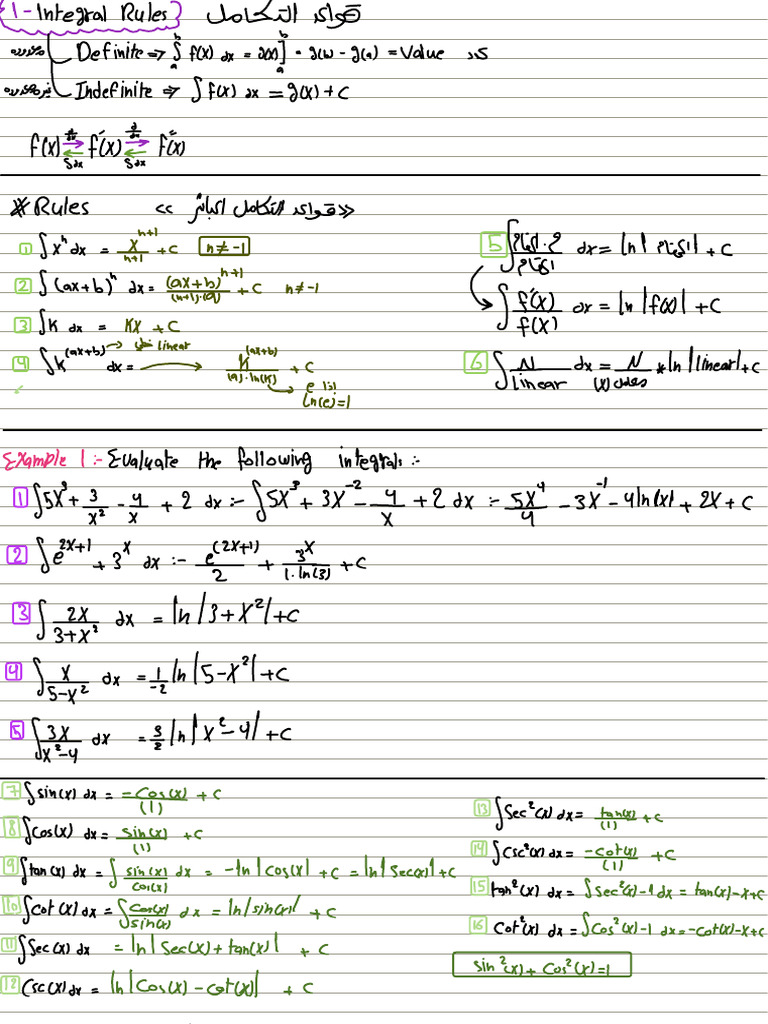 1 - Integral Rules قواعد التكامل
محدود Definite => ∫ₐᵇ f(x) dx = g(x)]ₐᵇ = g(b) - g(a) = Value
غير محدود Indefinite => ∫ f(x) dx = g(x) + C
f(x) ⇄ f'(x) ⇄ f''(x)
d/dx d/dx
∫dx ∫dx
* Rules << قواعد التكامل المباشر >>
1 ∫ xⁿ dx = xⁿ⁺¹/(n+1) + C n ≠ -1
2 ∫ (ax+b)ⁿ dx = (ax+b)ⁿ⁺¹/((n+1)·(a)) + C n ≠ -1
3 ∫ K dx = Kx + C
4 ∫ K^(ax+b) dx = K^(ax+b)/((a)·ln(K)) + C
خطي linear
اذا e
ln(e) = 1
5 ∫ المقام/المقام dx = ln|المقام| + C
∫ f'(x)/f(x) dx = ln|f(x)| + C
6 ∫ N/linear dx = N/معامل(x) * ln|linear| + C
Example 1 :- Evaluate the following integrals :-
1 ∫ 5x³ + 3/x² - 4/x + 2 dx :- ∫ 5x³ + 3x⁻² - 4/x + 2 dx :- 5x⁴/4 - 3x⁻¹ - 4ln|x| + 2x + C
2 ∫ e^(2x+1) + 3^x dx :- e^(2x+1)/2 + 3^x/(1·ln(3)) + C
3 ∫ 2x/(3+x²) dx = ln|3+x²| + C
4 ∫ x/(5-x²) dx = 1/-2 ln|5-x²| + C
5 ∫ 3x/(x²-4) dx = 3/2 ln|x²-4| + C
7 ∫ sin(x) dx = -cos(x)/(1) + C
8 ∫ cos(x) dx = sin(x)/(1) + C
9 ∫ tan(x) dx = ∫ sin(x)/cos(x) dx = -ln|cos(x)| + C = ln|sec(x)| + C
10 ∫ cot(x) dx = ∫ cos(x)/sin(x) dx = ln|sin(x)| + C
11 ∫ sec(x) dx = ln|sec(x) + tan(x)| + C
12 csc(x) dx = ln|cos(x) - cot(x)| + C
13 ∫ sec²(x) dx = tan(x)/(1) + C
14 ∫ csc²(x) dx = -cot(x)/(1) + C
15 tan²(x) dx = ∫ sec²(x) - 1 dx = tan(x) - x + C
16 cot²(x) dx = ∫ cos²(x) - 1 dx = -cot(x) - x + C
sin²(x) + cos²(x) = 1